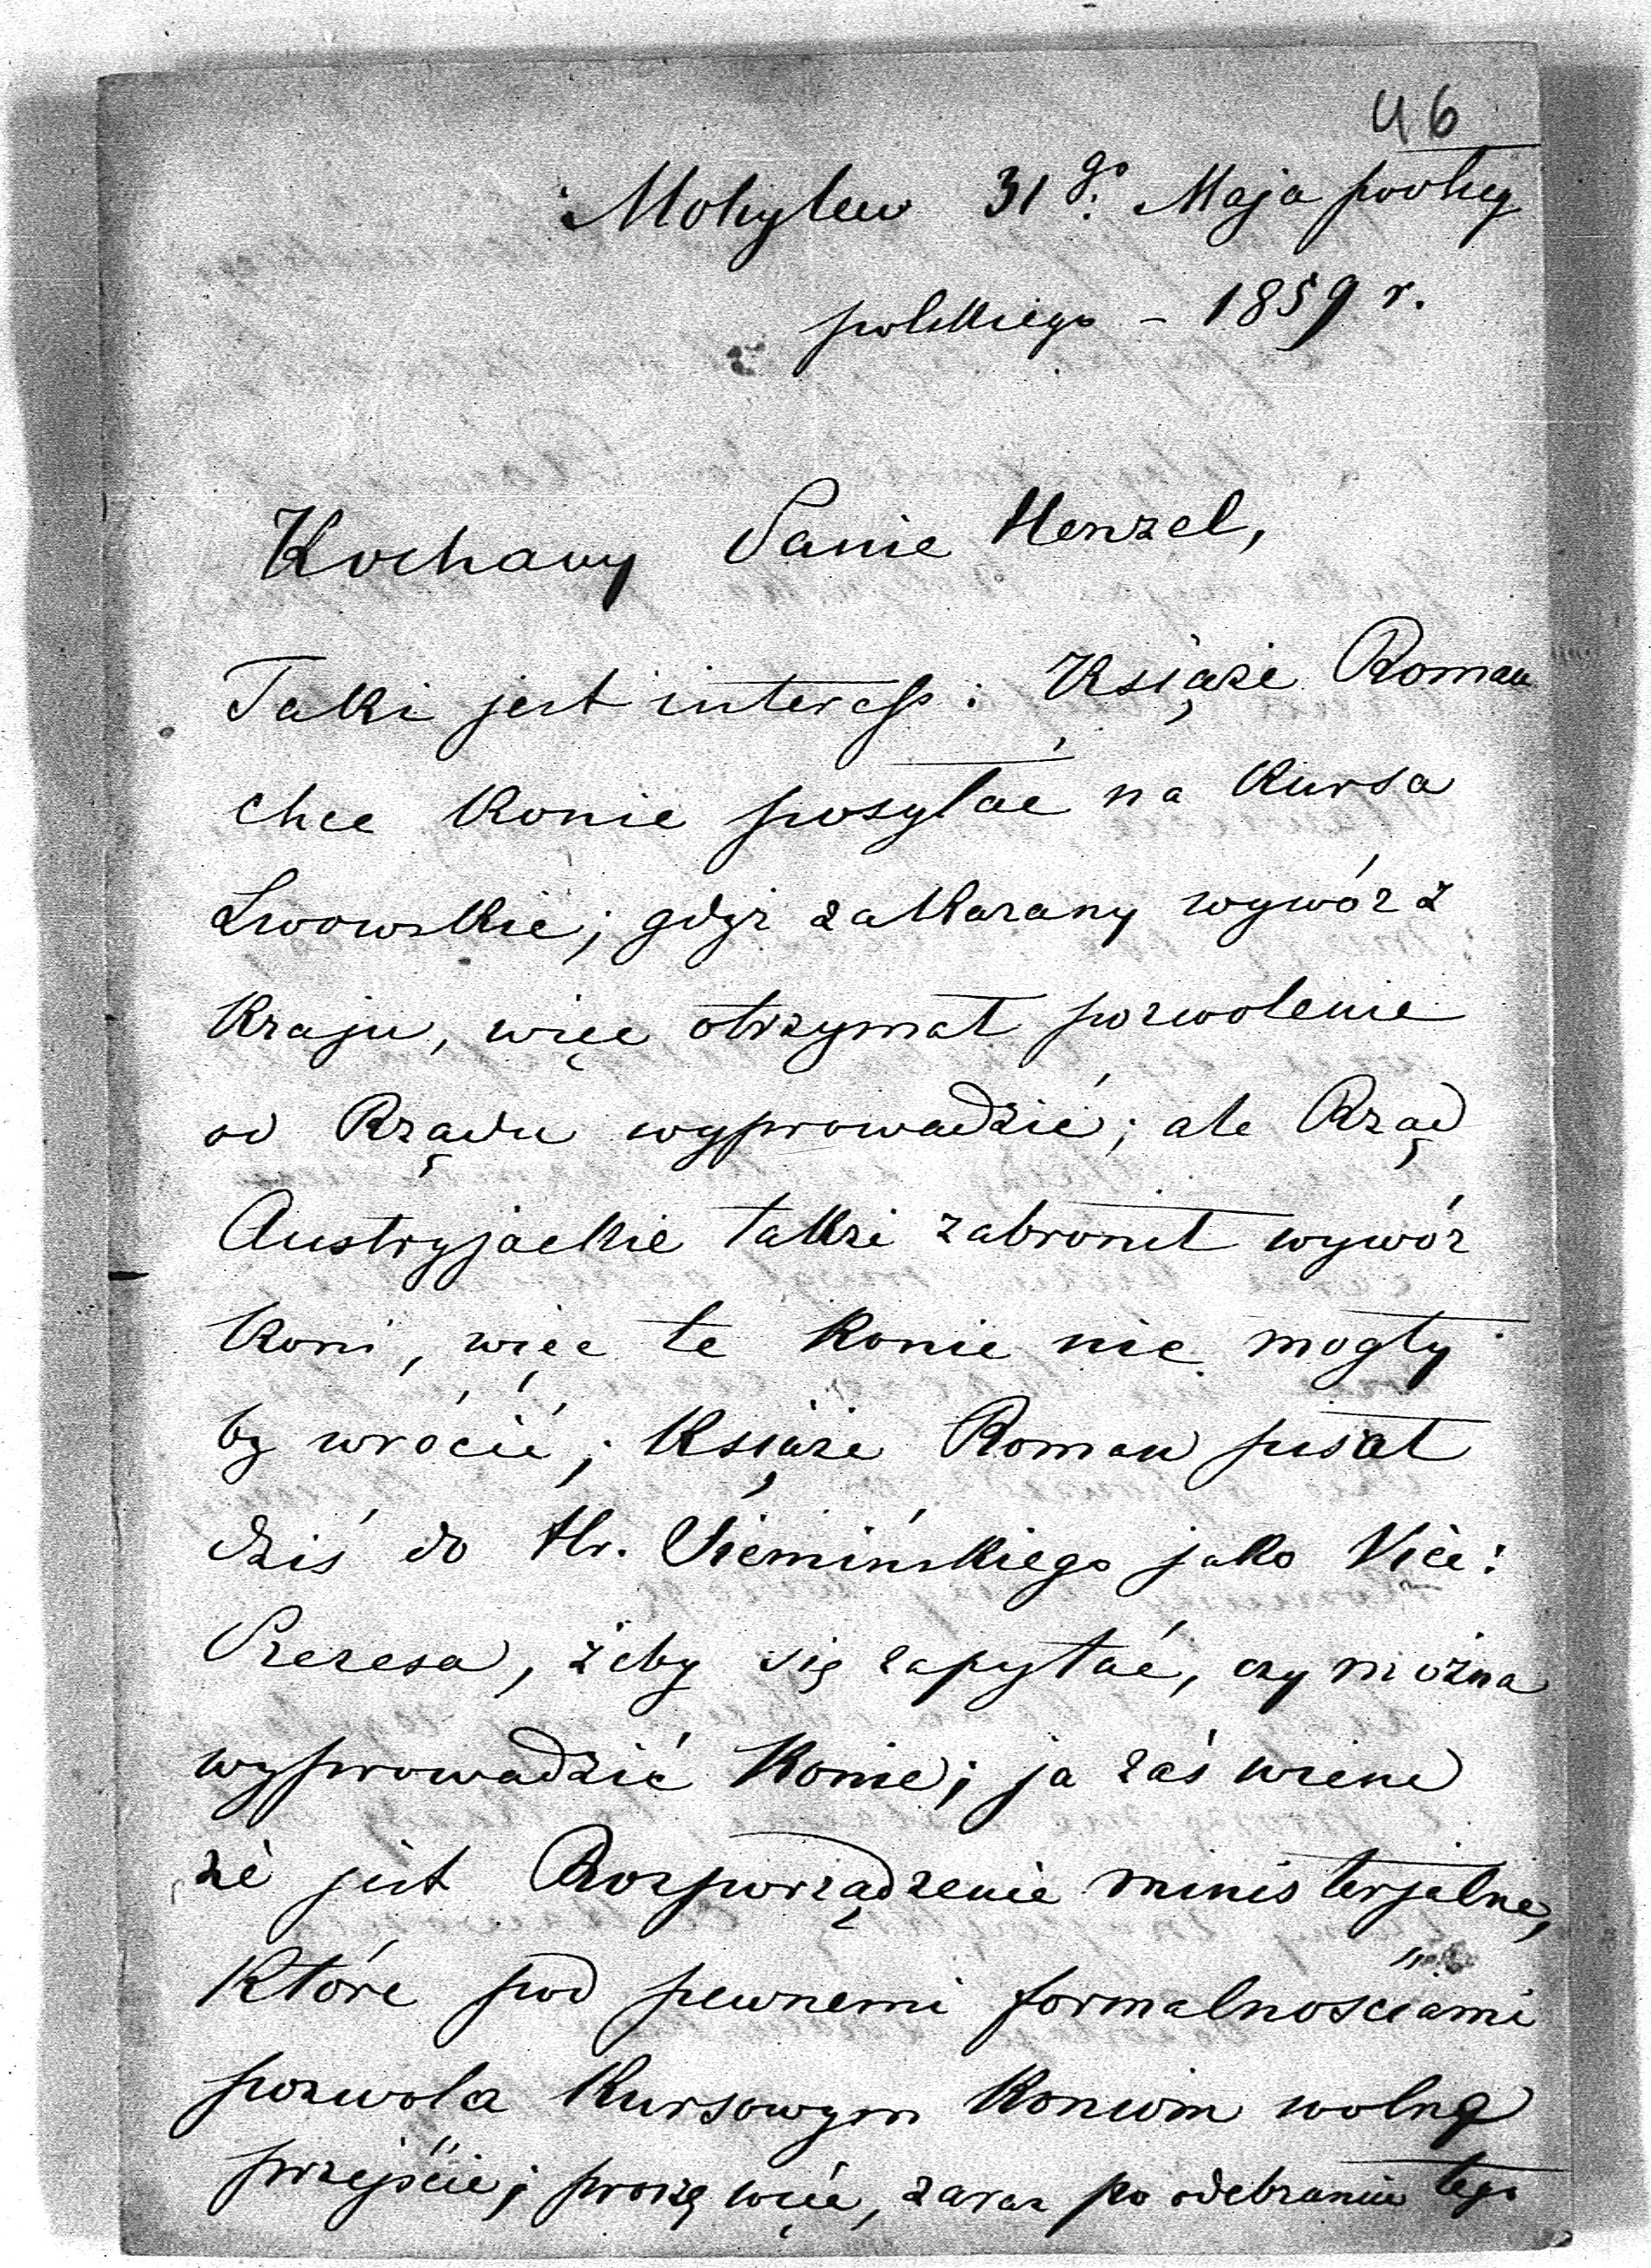 46
Mohylew 31go Maja podług
polskiego – 1859 r.
Kochany Panie Henzel,
Taki jest interess: Książe Roman
chce konie posyłać na Kursa
Lwowskie; gdyż zakazany wywóz z
Kraju, więc otrzymał pozwolenie
od Rządu wyprowadzić; ale Rząd
Austryjackie także zabronił wywóz
koni, więc te konie nie mogły
by wrócić; Książe Roman pisał
dziś do Hr. Siemińskiego jako Vice:
Prezesa, żeby się zapytać, czy można
wyprowadzić konie; ja zaś wiem
że jest Rozporządzenie ministerjalne,
które pod pewnemi formalnościami
pozwola Kursowym koniom wolne
przejście; proszę więc, zaraz po odebraniu tego